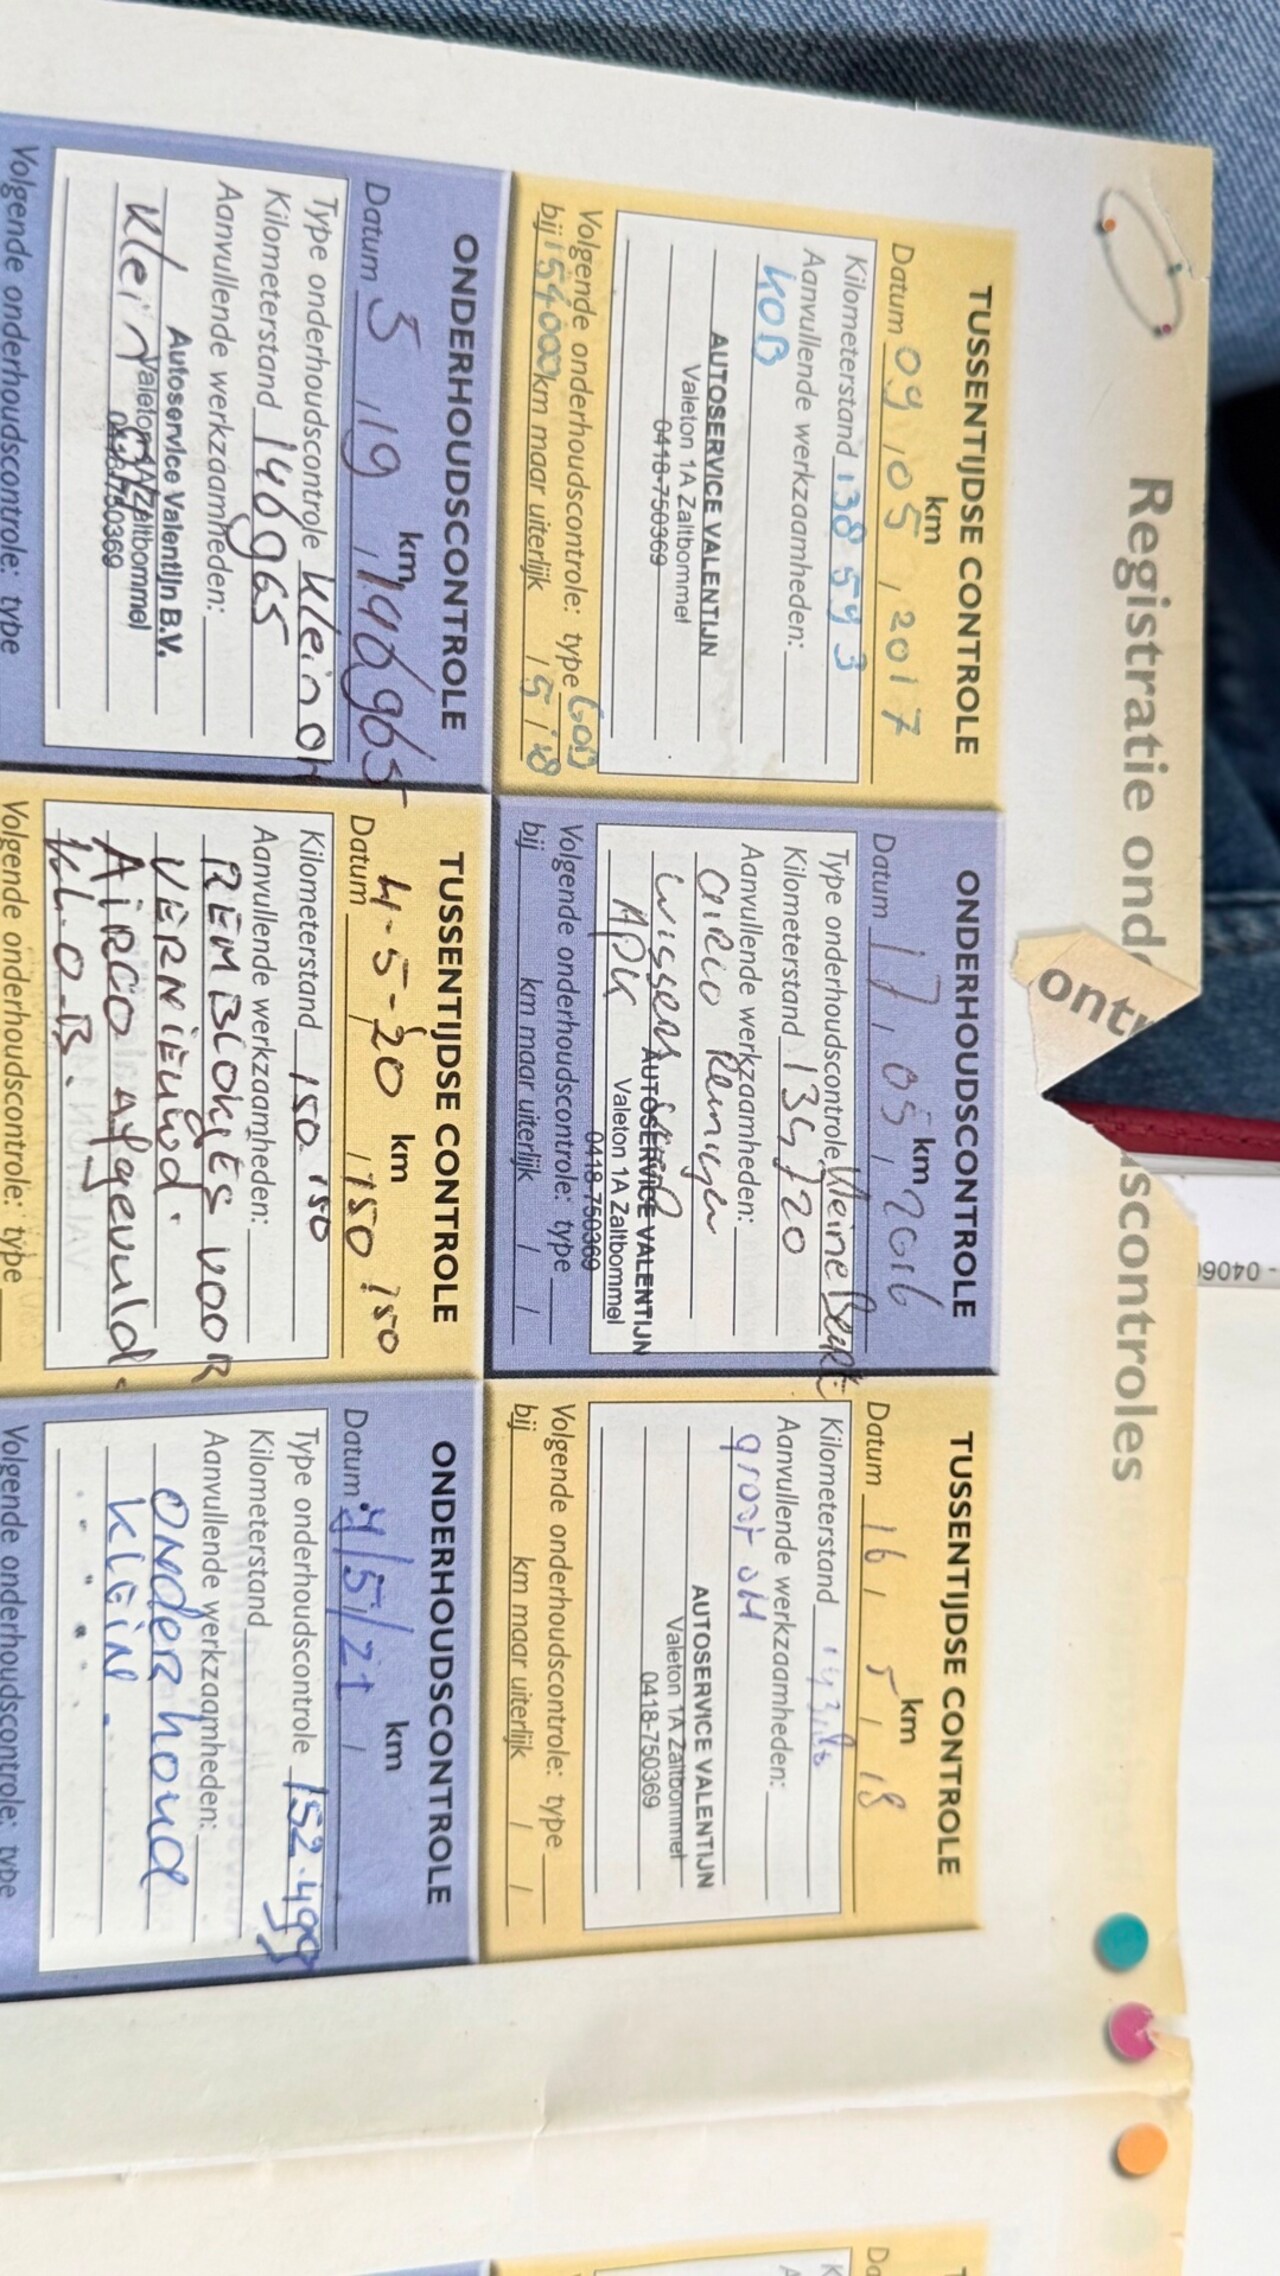 Registratie ond
ontr
scontroles
TUSSENTIJDSE CONTROLE
km
Datum 09 / 05 / 2017
Kilometerstand 138 593
Aanvullende werkzaamheden:
KOB
AUTOSERVICE VALENTIJN
Valeton 1A Zaltbommel
0418-750369
Volgende onderhoudscontrole: type GOB
bij 154000 km maar uiterlijk / 5 / 18
ONDERHOUDSCONTROLE
km
Datum 17 / 05 / 2016
Type onderhoudscontrole Kleine Beurt
Kilometerstand 135720
Aanvullende werkzaamheden:
airco Reinigen
wissers
APK
AUTOSERVICE VALENTIJN
Valeton 1A Zaltbommel
0418-750369
Volgende onderhoudscontrole: type
bij km maar uiterlijk / /
TUSSENTIJDSE CONTROLE
km
Datum 16 / 5 / 18
Kilometerstand
Aanvullende werkzaamheden:
groot OH
AUTOSERVICE VALENTIJN
Valeton 1A Zaltbommel
0418-750369
Volgende onderhoudscontrole: type
bij km maar uiterlijk / /
ONDERHOUDSCONTROLE
km
Datum 3 / 19 / 146965
Type onderhoudscontrole Klein OH
Kilometerstand 146965
Aanvullende werkzaamheden:
Autoservice Valentijn B.V.
Valeton 1A Zaltbommel
0418-750369
Klein
Volgende onderhoudscontrole: type
TUSSENTIJDSE CONTROLE
km
Datum 4-5-20 / 150 150
Kilometerstand 150 150
Aanvullende werkzaamheden:
REMBLOKJES VOOR
VERNIEUWD.
AIRCO Afgevuld.
KL.O.B.
Volgende onderhoudscontrole: type
ONDERHOUDSCONTROLE
km
Datum 4/5/21 /
Type onderhoudscontrole 152.499
Kilometerstand
Aanvullende werkzaamheden:
Onderhoud
KLEIN.
Volgende onderhoudscontrole: type